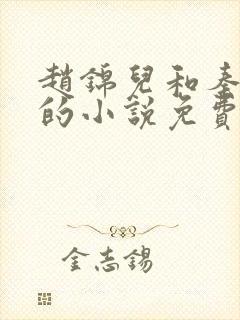 趙錦兒和秦
的小說免費
金志錫